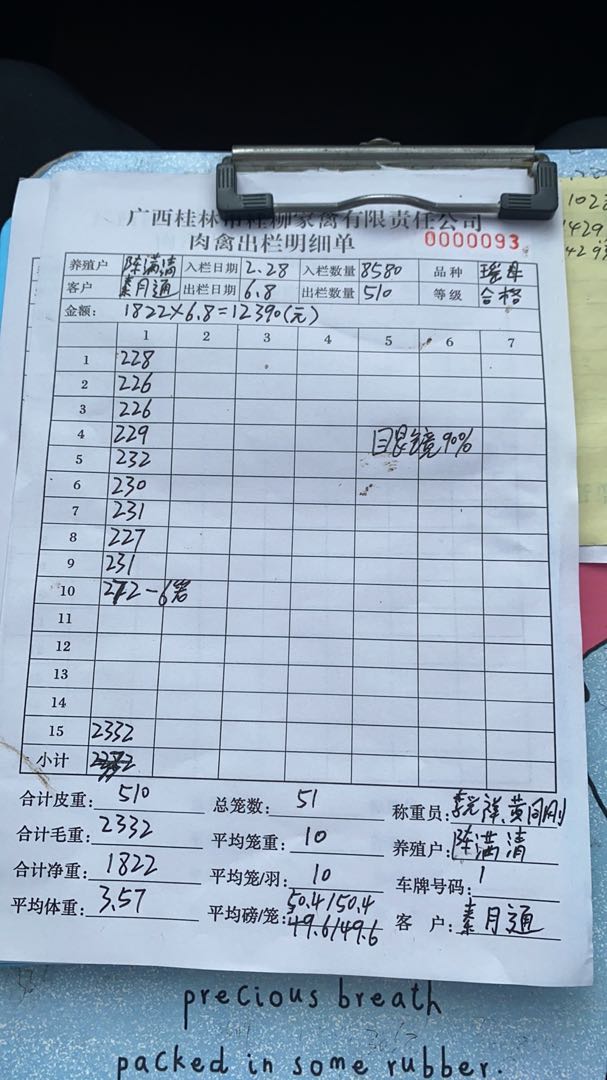 广西桂林市桂柳家禽有限责任公司
肉禽出栏明细单 0000093
养殖户 陈满清 入栏日期 2.28 入栏数量 8580 品种 瑶阜
客户 素月通 出栏日期 6.8 出栏数量 510 等级 合格
金额: 1822×6.8=12390(元)
1 2 3 4 5 6 7
1 228
2 226
3 226
4 229 眼镜90%
5 232
6 230
7 231
8 227
9 231
10 272-6笼
11
12
13
14
15 2332
小计
合计皮重: 510 总笼数: 51 称重员:
合计毛重: 2332 平均笼重: 10 养殖户: 陈满清
合计净重: 1822 平均笼/羽: 10 车牌号码: 1
平均体重: 3.57 平均磅/笼: 50.4/50.4 客 户: 素月通
49.6/49.6
precious breath
packed in some rubber.